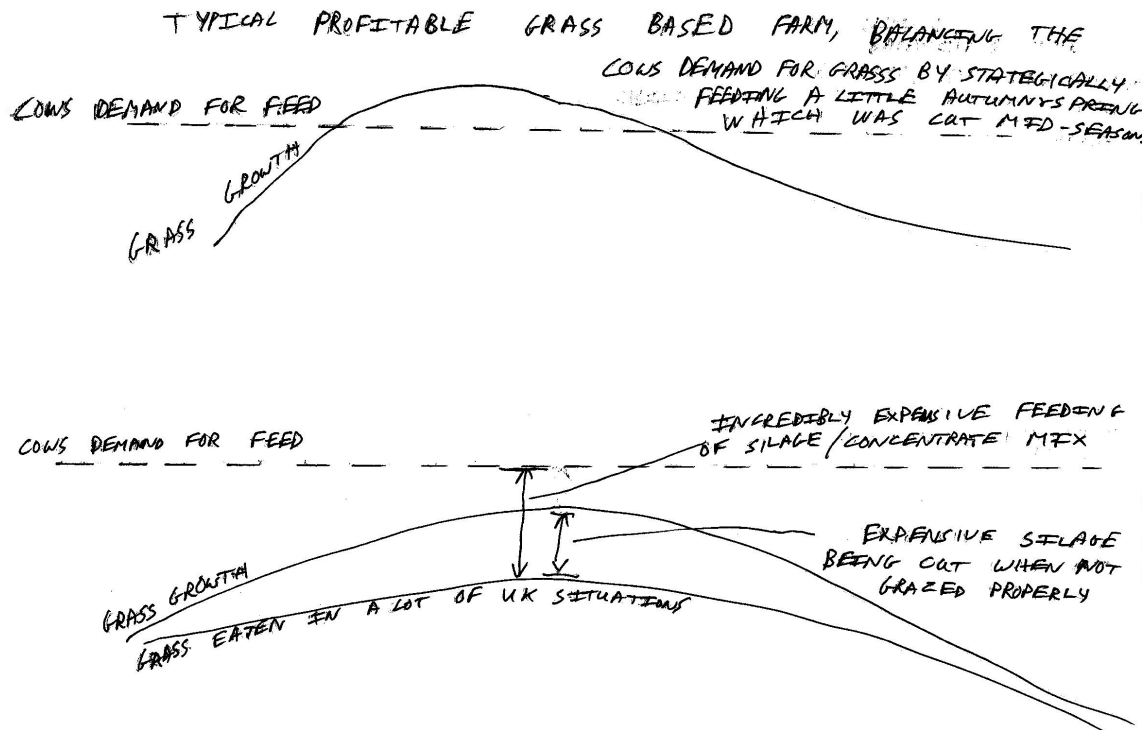 TYPICAL PROFITABLE GRASS BASED FARM, BALANCING THE
COWS DEMAND FOR GRASSS BY STATEGICALLY
FEEDING A LITTLE AUTUMN/SPRING
WHICH WAS CUT MID-SEASON
COWS DEMAND FOR FEED
GRASS GROWTH
COWS DEMAND FOR FEED
INCREDIBLY EXPENSIVE FEEDING
OF SILAGE/CONCENTRATE MIX
EXPENSIVE SILAGE
BEING CUT WHEN NOT
GRAZED PROPERLY
GRASS GROWTH
GRASS EATEN IN A LOT OF UK SITUATIONS